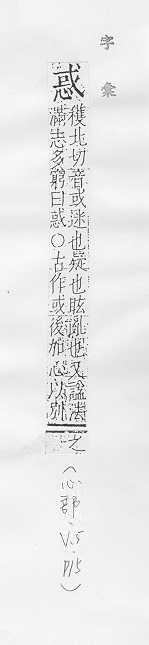 字彙
惑
穫北切音或迷也疑也眩亂也又諡法
滿志多窮曰惑○古作或後加心以別
之
(心部·V.5·P15)